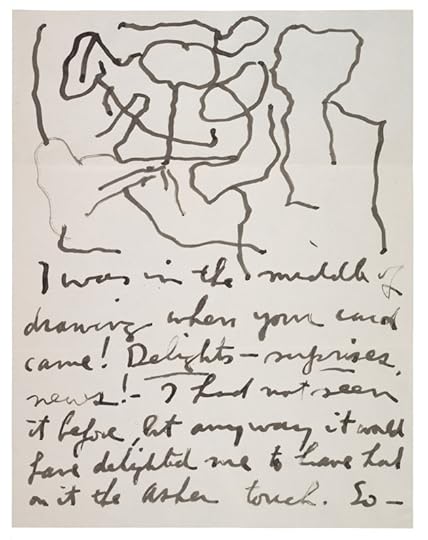 I was in the middle of
drawing when your card
came! Delights – surprises,
news! – I had not seen
it before, but anyway it would
have delighted me to have had
on it the Asher touch. So –